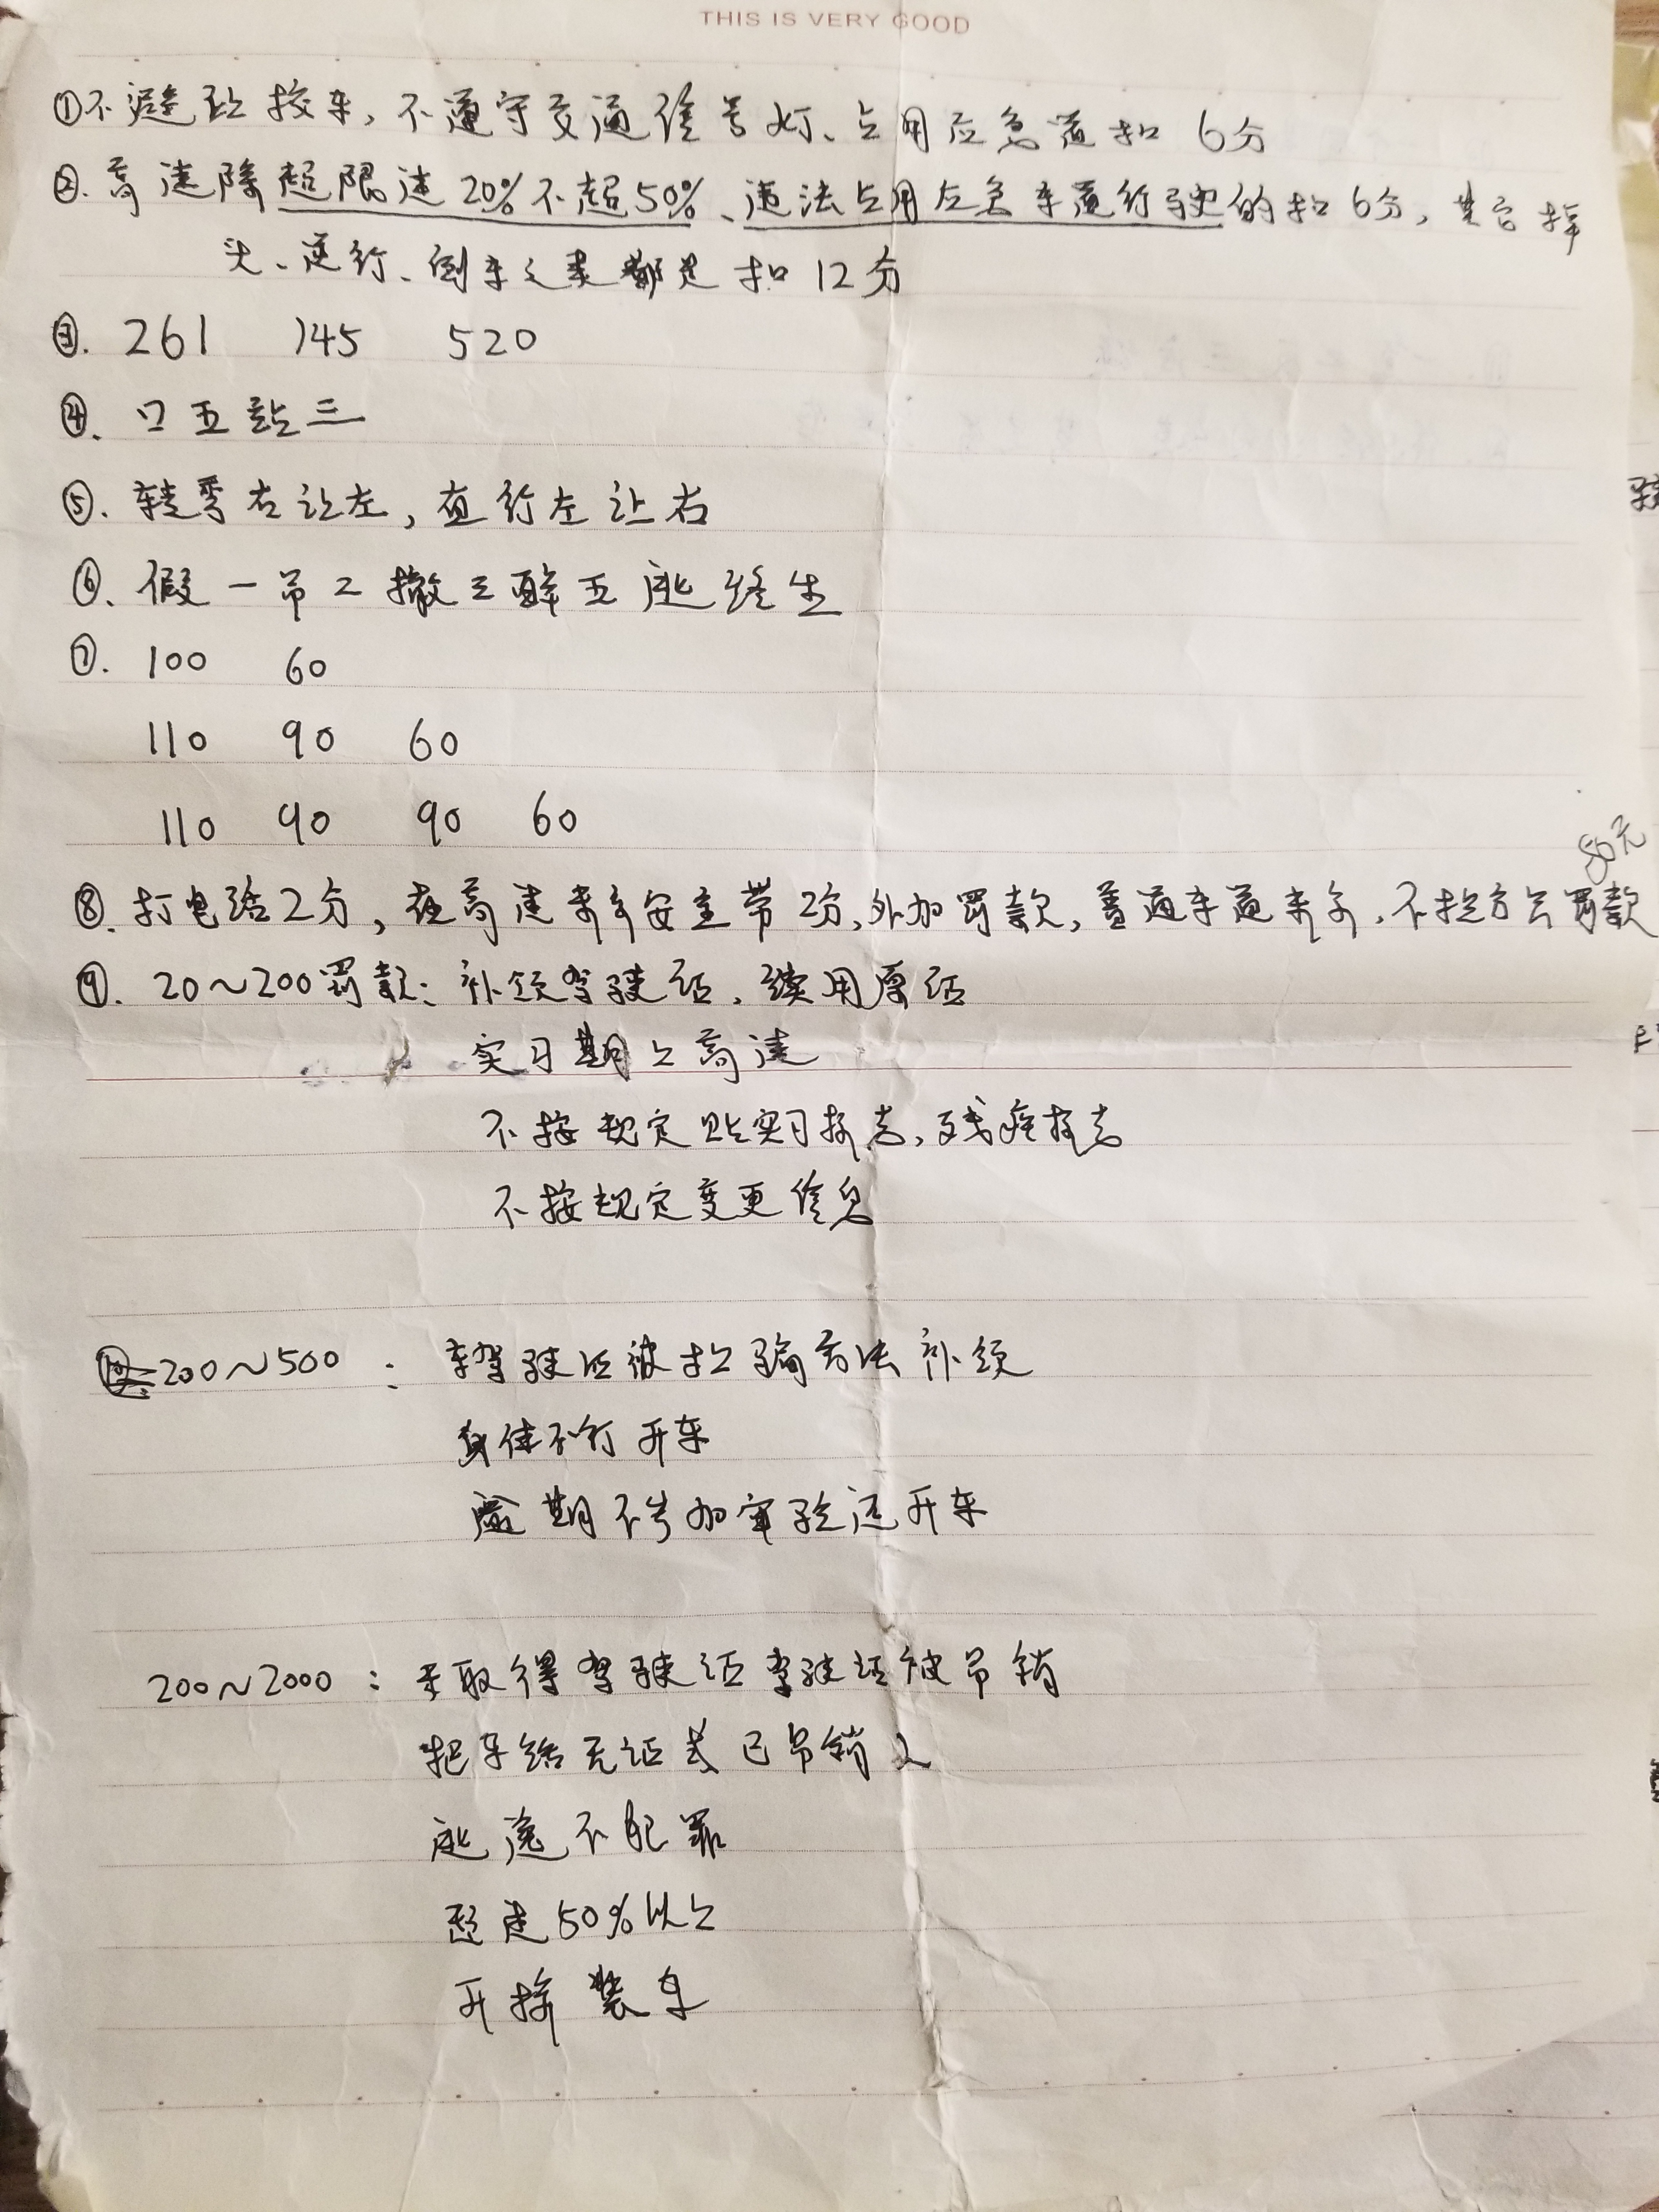 THIS IS VERY GOOD
①不避让校车,不遵守交通信号灯、占用应急道扣6分
②.高速除超限速20%不超50%、违法占用应急车道行驶的扣6分,其它掉
头、逆行、倒车之类都是扣12分
③. 261 145 520
④. 口五站三
⑤. 转弯右让左,直行左让右
⑥. 假一吊二撤三醉五逃终生
⑦. 100 60
110 90 60
110 90 90 60
50元
⑧.打电话2分,在高速未系安全带2分,外加罚款,普通车道未系,不扣分只罚款
⑨. 20~200罚款:补领驾驶证,续用原证
实习期上高速
不按规定贴实习标志,残疾标志
不按规定变更信息
200~500: 驾驶证被扣骗方法补领
身体不行开车
逾期不参加审验还开车
200~2000:未取得驾驶证驾驶证被吊销
把车给无证或已吊销人
逃逸不犯罪
超速50%以上
开拼装车